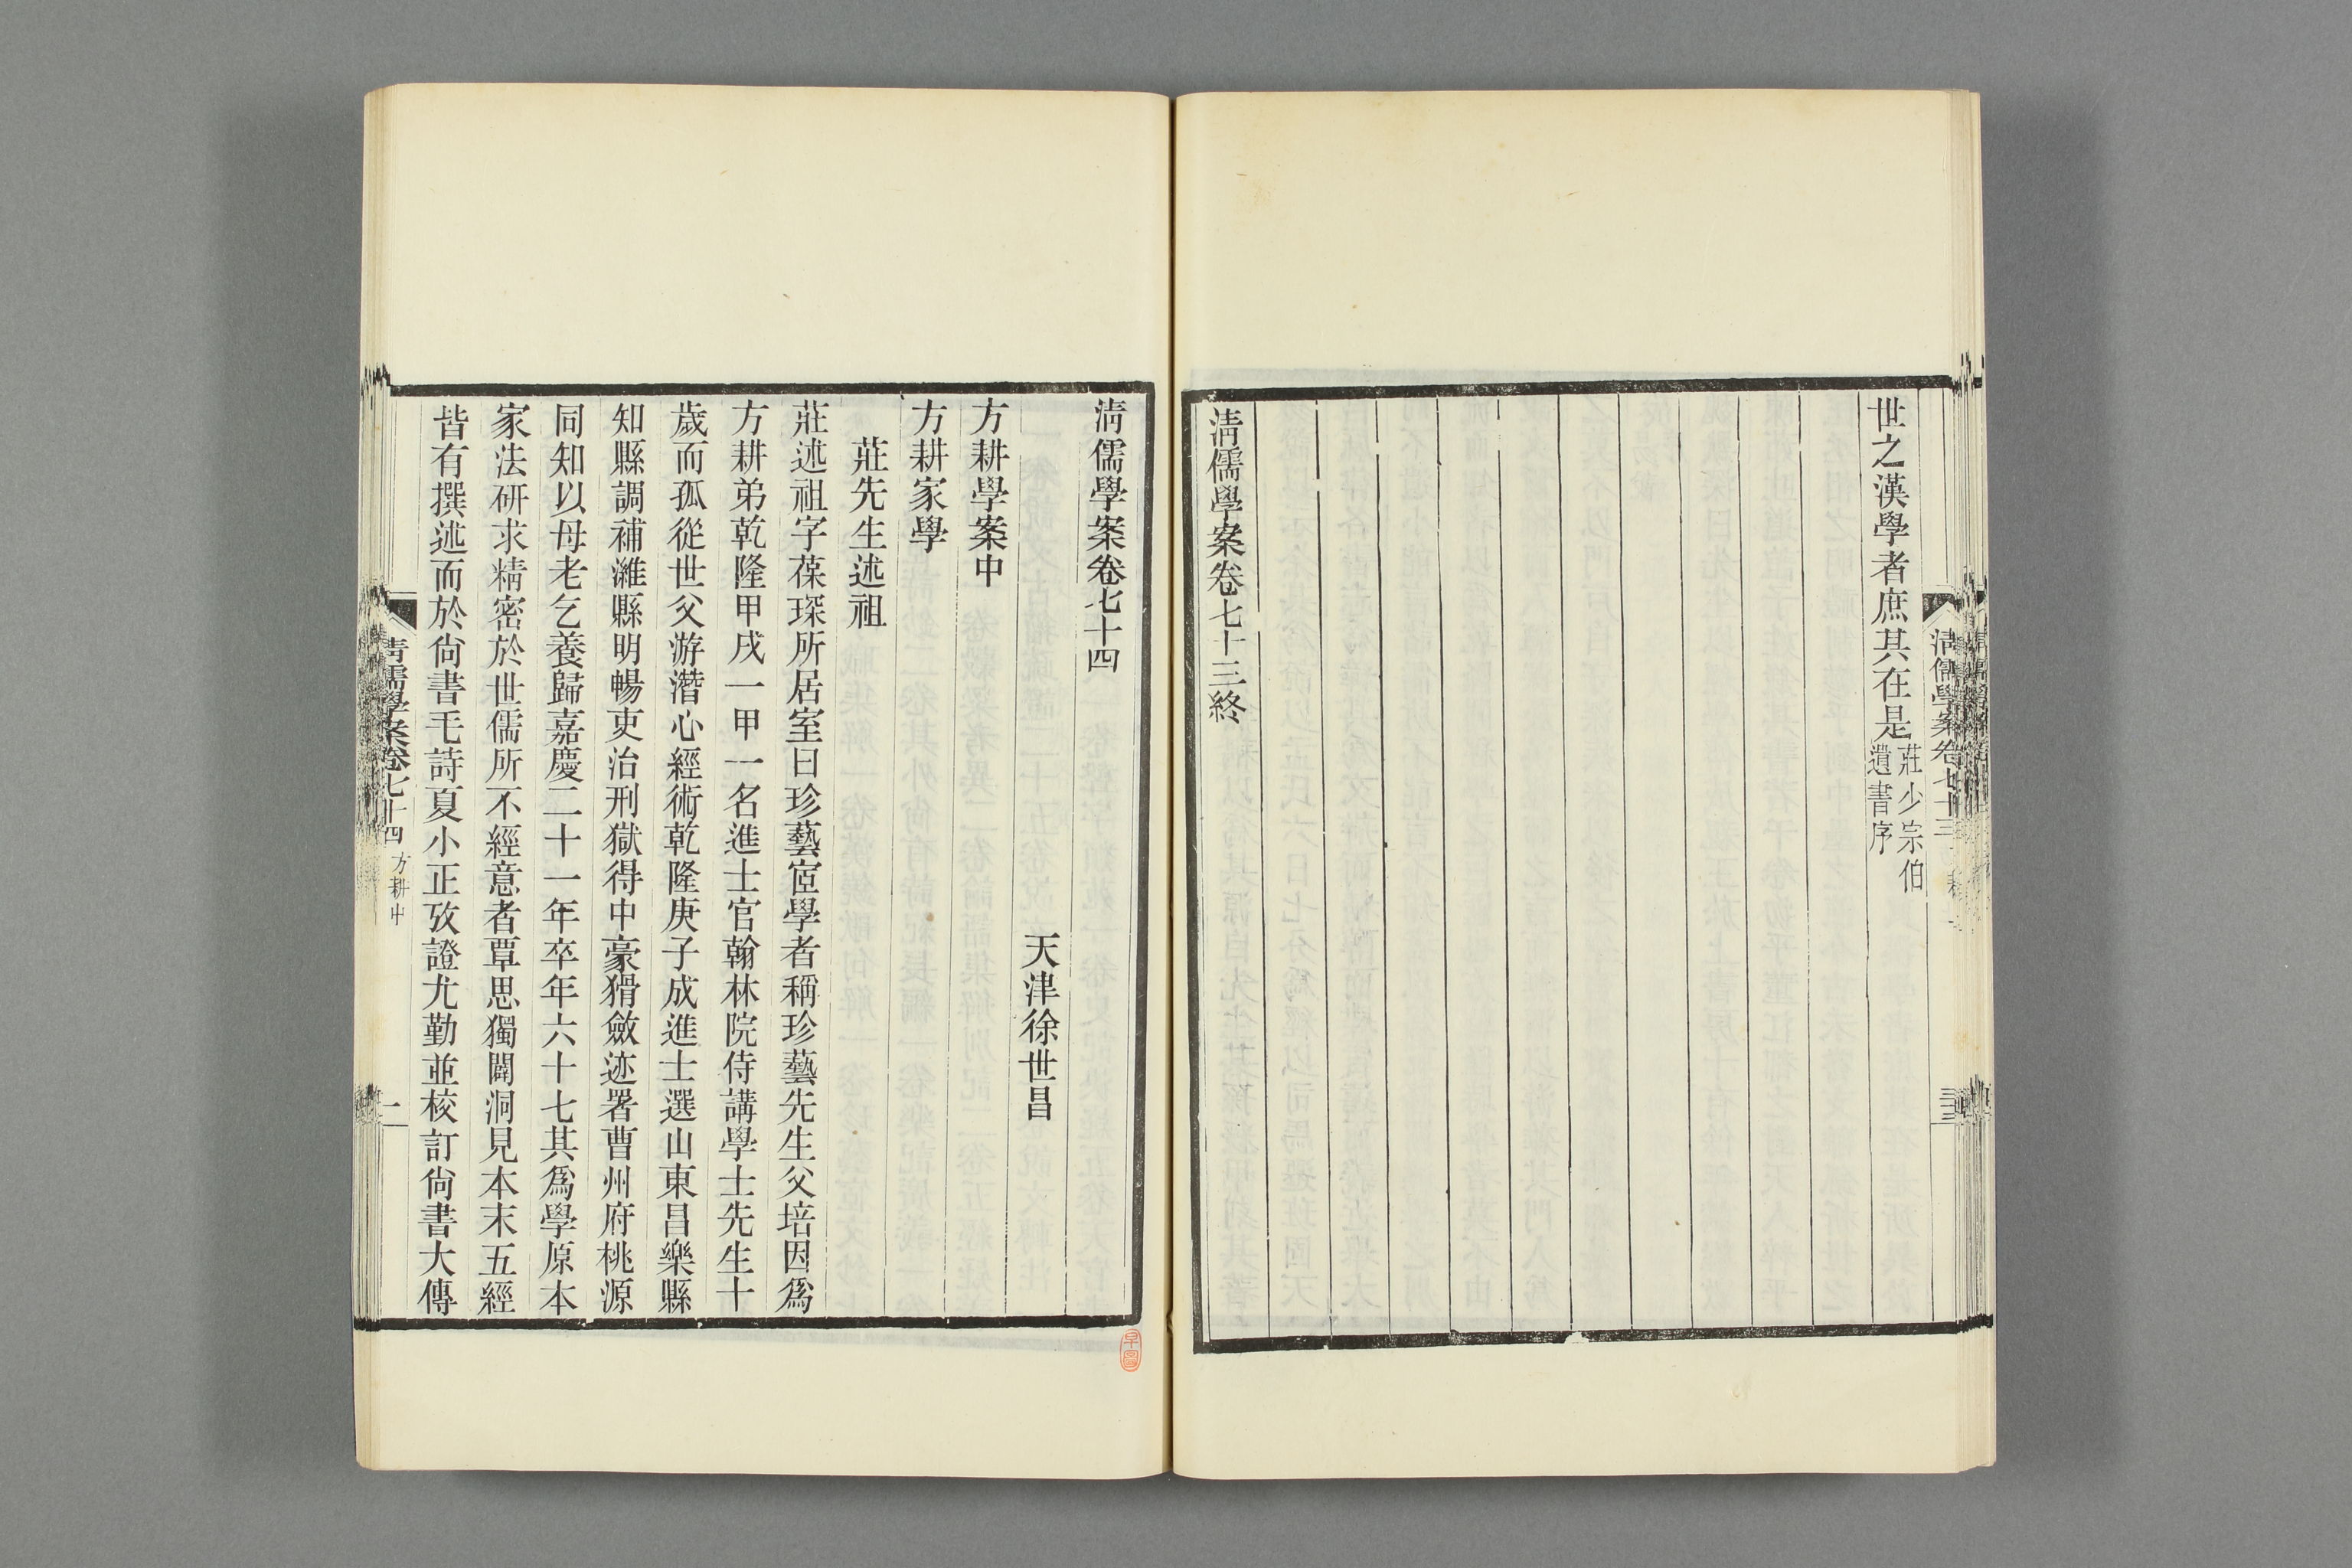 世之漢學者庶其在是莊少宗伯
遺書序
清儒學案卷七十三終
清儒學案卷七十三
清儒學案卷七十四
天津徐世昌
方耕學案中
方耕家學
莊先生述祖
莊述祖字葆琛所居室曰珍藝宧學者稱珍藝先生父培因爲
方耕弟乾隆甲戌一甲一名進士官翰林院侍講學士先生十
歲而孤從世父游潛心經術乾隆庚子成進士選山東昌樂縣
知縣調補濰縣明暢吏治刑獄得中豪猾斂迹署曹州府桃源
同知以母老乞養歸嘉慶二十一年卒年六十七其爲學原本
家法研求精密於世儒所不經意者覃思獨闢洞見本末五經
皆有撰述而於尙書毛詩夏小正攷證尤勤並校訂尙書大傳
清儒學案卷七十四 方耕中
一